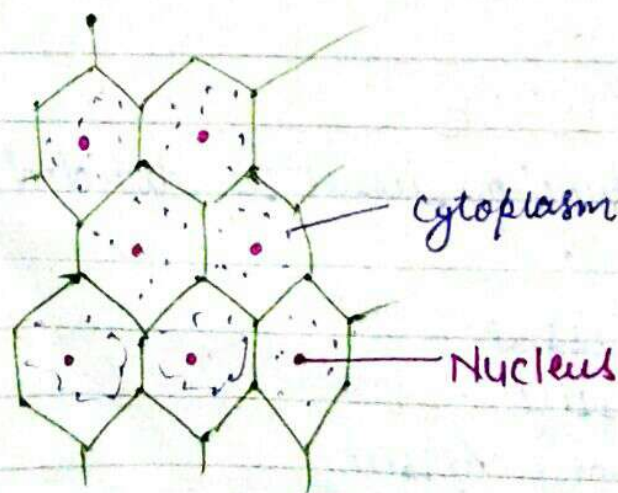 cytoplasm
Nucleus